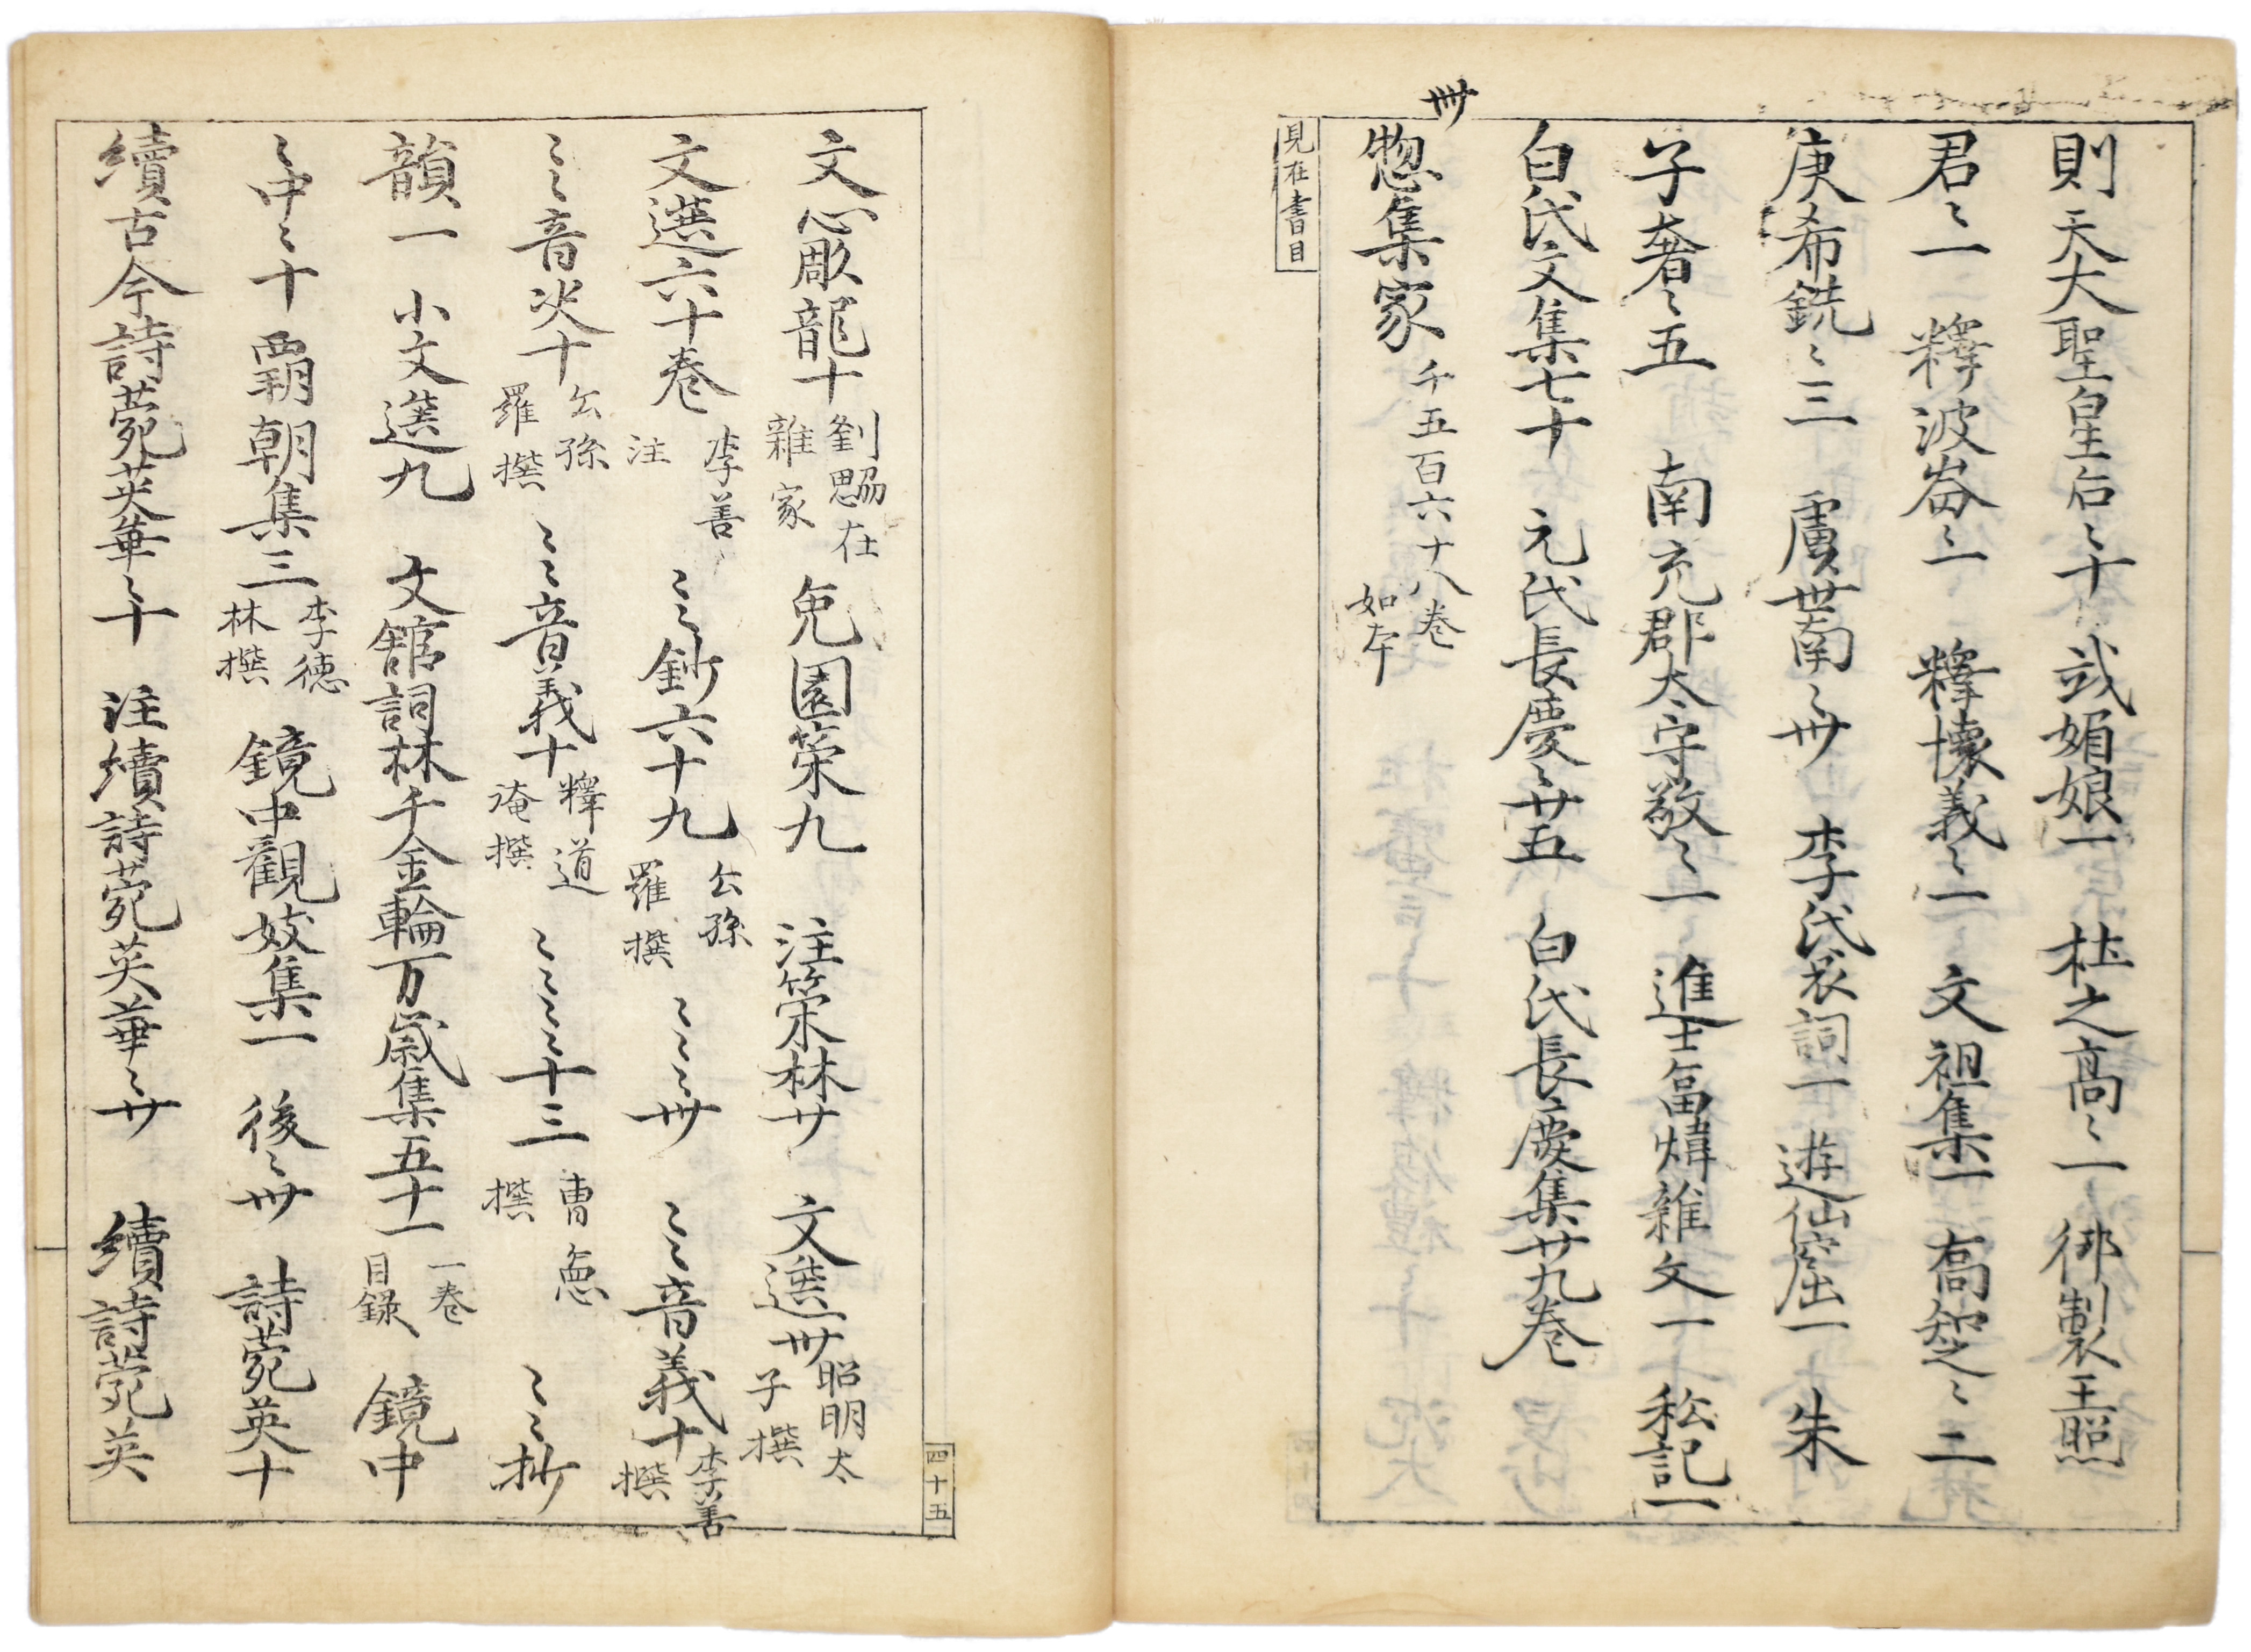 則天大聖皇后〻十 武媚娘一 杜之高〻一 御製王照
君〻一 釋波崙〻一 釋懐義〻一 文祖集一 高智之〻二
庚希銑〻三 虞世南〻卅 李氏哀詞一 遊仙窟一 朱
子奢〻五 南充郡太守敬〻一 進士冨煒雜文一 私記一
白氏文集七十 元氏長慶〻廿五 白氏長慶集廿九巻
卌
惣集家 千五百六十八巻
如本
見在書目
文心彫龍十 劉思勰在
雜家
兎園策九 注策林廿 文選卅 昭明太
子撰
文選六十巻 李善
注
〻〻鈔六十九 公孫
羅撰
〻〻〻卅 〻〻音義十 李善
撰
〻〻音决十 公孫
羅撰
〻〻音義十 釋道
淹撰
〻〻〻〻十三 曺憲
撰
〻〻抄
韻一 小文選九 文舘詞林千金輪万歳集五十一 一巻
目録
鏡中
〻中〻十 覇朝集三 李徳
林撰
鏡中觀妓集一 後〻卅 詩菀英十
續古今詩菀英華〻十 注續詩菀英華〻廿 續詩菀英
四十五